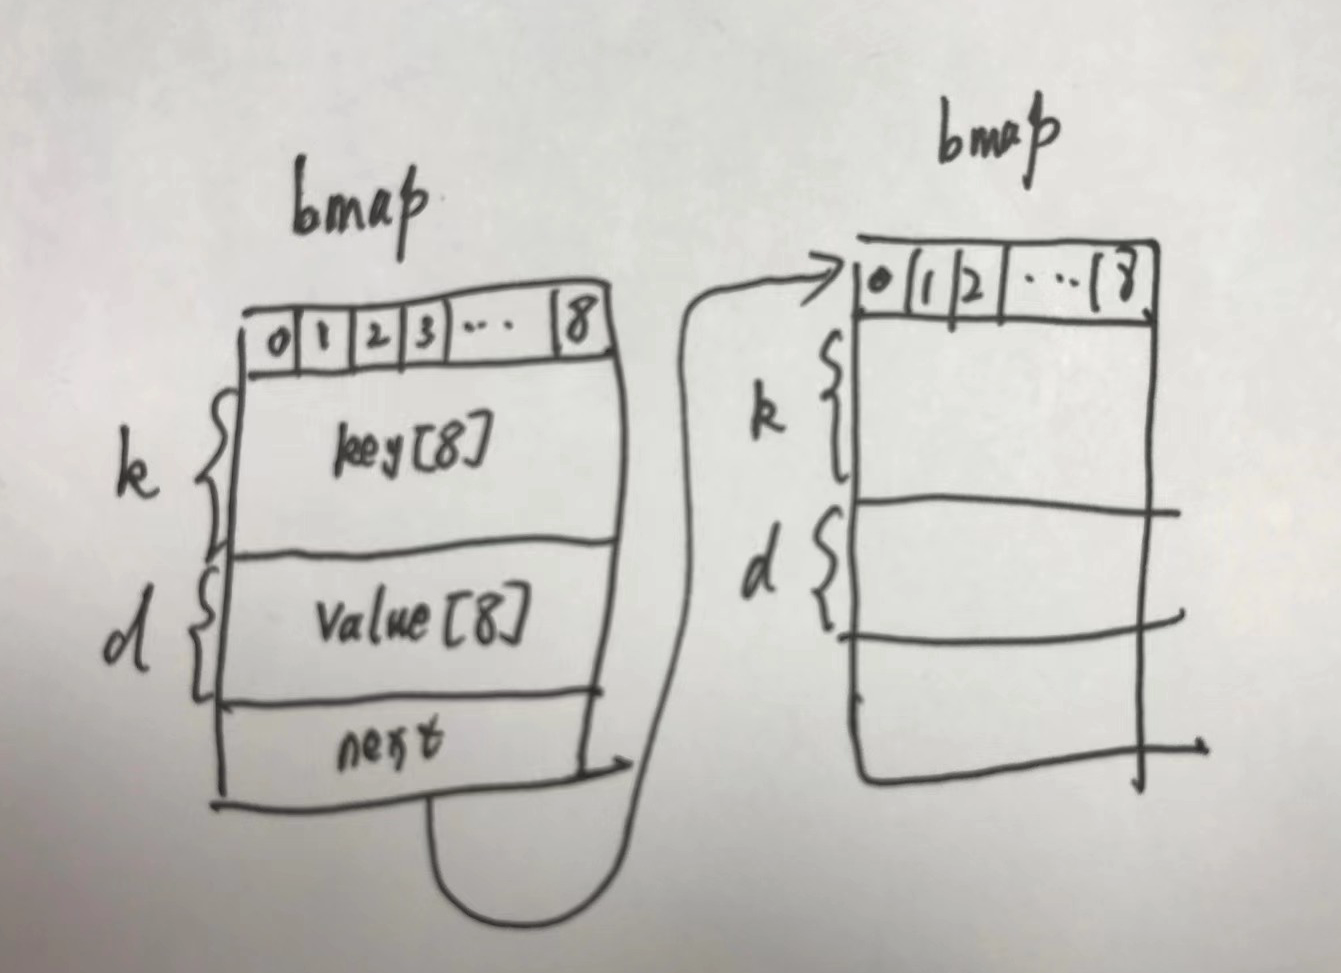 bmap
0 1 2 3 ... 8
k
key[8]
d
value[8]
next
bmap
0 1 2 ... 8
k
d